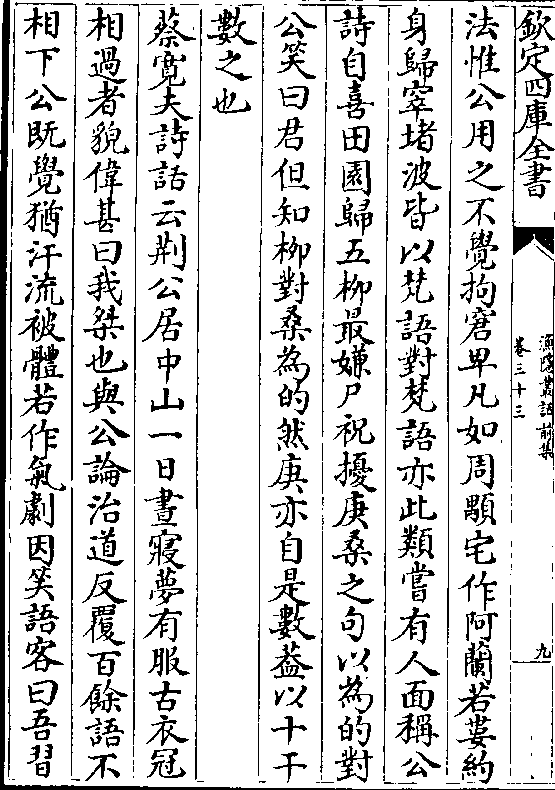 欽定四庫全書
漁隱叢話前集
卷三十三
九
法惟公用之不覺拘窘卑凡如周顒宅作阿蘭若婁約
身歸窣堵波皆以梵語對梵語亦此類嘗有人面稱公
詩自喜田園歸五柳最嫌尸祝擾庚桑之句以為的對
公笑曰君但知柳對桑為的然庚亦自是數葢以十干
數之也
蔡寛夫詩話云荆公居中山一日晝寢夢有服古衣冠
相過者貌偉甚曰我桀也與公論治道反覆百餘語不
相下公既覺猶汗流被體若作氣劇因笑語客曰吾習